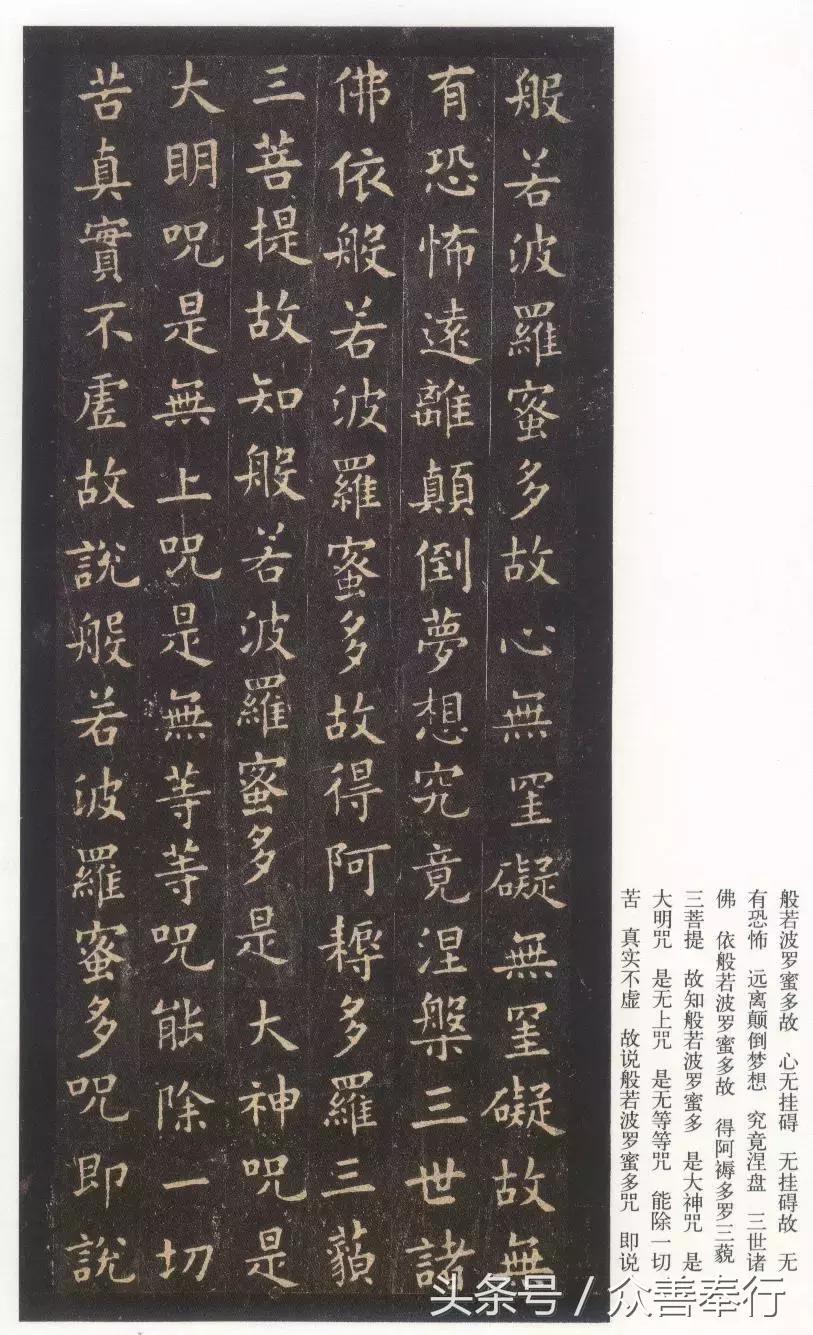 般若波羅蜜多故心無罣礙無罣礙故無
有恐怖遠離顛倒夢想究竟涅槃三世諸
佛依般若波羅蜜多故得阿耨多羅三藐
三菩提故知般若波羅蜜多是大神咒是
大明咒是無上咒是無等等咒能除一切
苦真實不虛故說般若波羅蜜多咒即說
般若波罗蜜多故 心无挂碍 无挂碍故 无
有恐怖 远离颠倒梦想 究竟涅盘 三世诸
佛 依般若波罗蜜多故 得阿褥多罗三藐
三菩提 故知般若波罗蜜多 是大神咒 是
大明咒 是无上咒 是无等等咒 能除一切
苦 真实不虚 故说般若波罗蜜多咒 即说
头条号 / 众善奉行